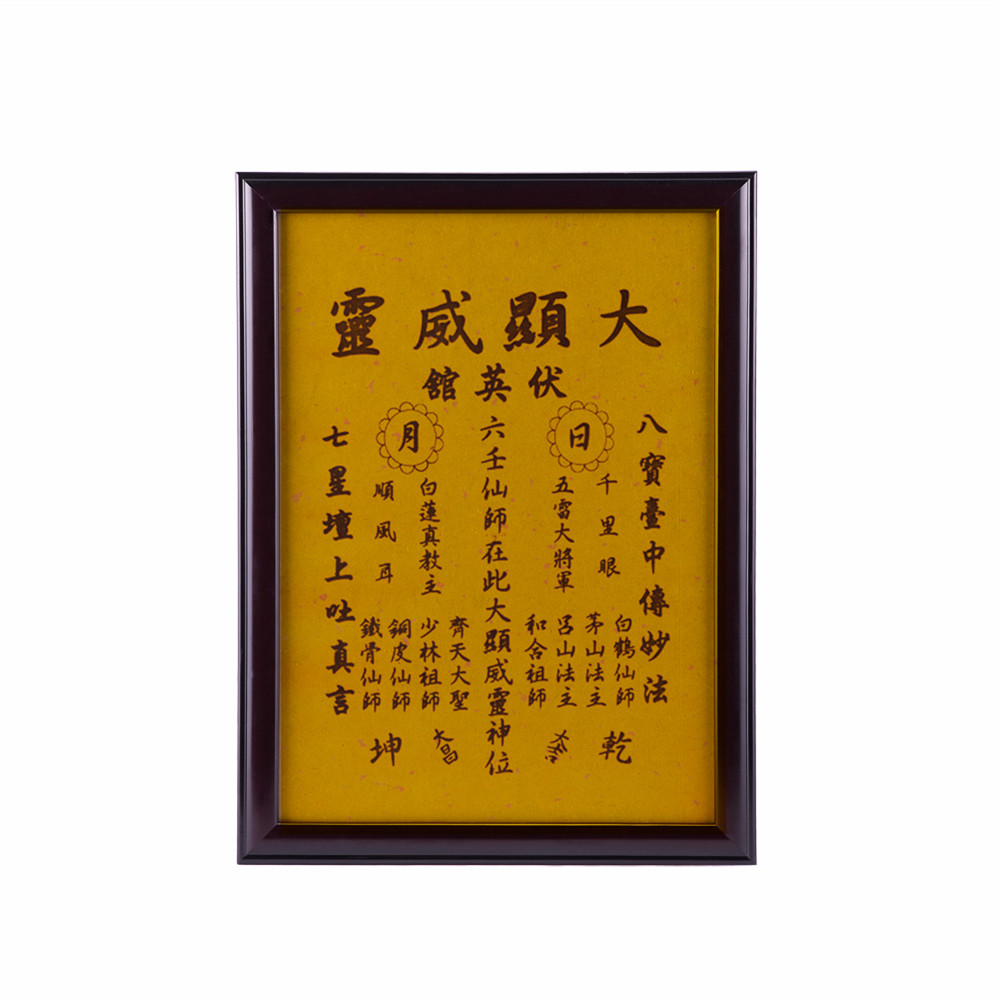 大顯威靈
伏英舘
八寶臺中傳妙法
日
千里眼
五雷大將軍
白鶴仙師
茅山法主
呂山法主
和合祖師
乾
六壬仙師在此大顯威靈神位
月
白蓮真教主
順風耳
齊天大聖
少林祖師
銅皮仙師
鐵骨仙師
大昌
坤
七星壇上吐真言